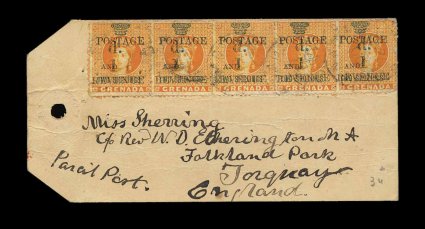 POSTAGE POSTAGE POSTAGE POSTAGE POSTAGE
d. d. d. d. d.
AND 1 AND 1 AND 1 AND 1 AND 1
GRENADA GRENADA GRENADA GRENADA GRENADA
Miss Sherring
c/o Rev W. D. Etherington M A
Falkland Park
Parcel Post. Torquay
England.
34